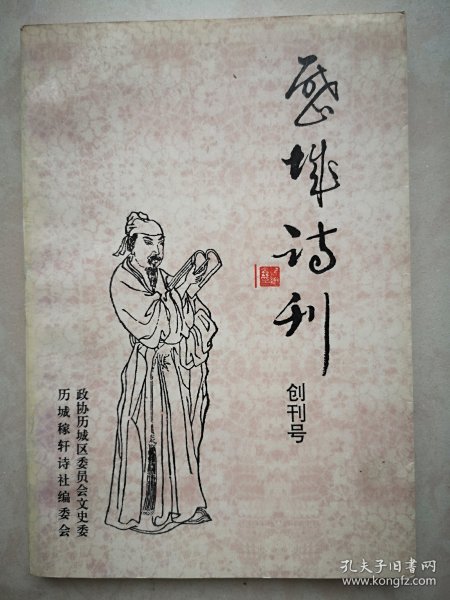 历城诗刊
创刊号
政协历城区委员会文史委
历城稼轩诗社编委会
孔夫子旧书网
www.kongfz.com